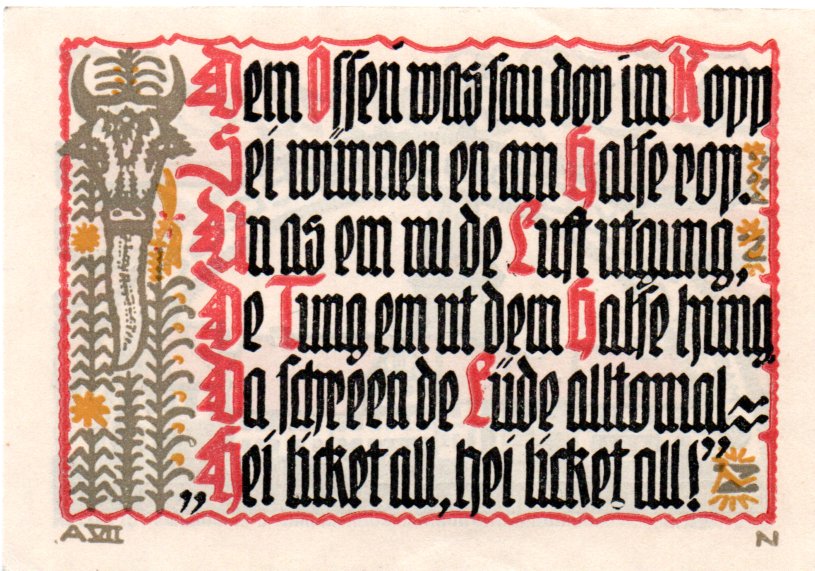 Dem Ossen was sau dov im Kopp
Sei wünnen en am Halse rop.
Un as em nu de Luft utgung,
De Tung em ut dem Halse hung
Da schreen de Lüde alltomal
„Hei licket all, hei licket all!”
A VII
N